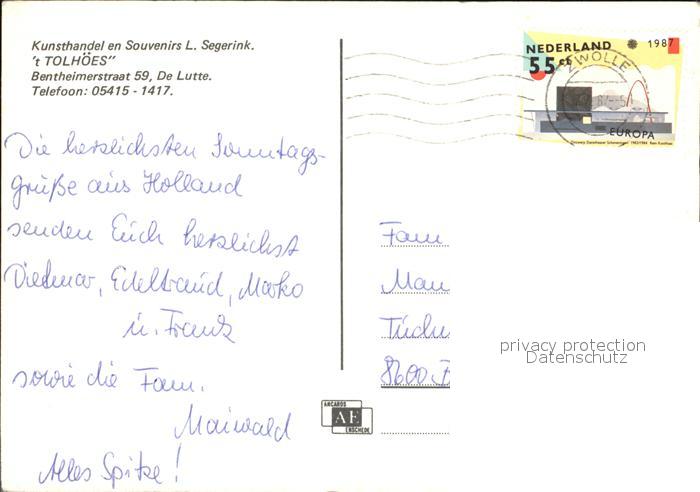 Kunsthandel en Souvenirs L. Segerink.
't TOLHÖES"
Bentheimerstraat 59, De Lutte.
Telefoon: 05415 - 1417.
NEDERLAND 1987
55 ct
ZWOLLE
EUROPA
Die herzlichsten Sonntags-
grüße aus Holland
senden Euch herzlichst
Dietmar, Edeltraud, Marko
u. Frank
sowie die Fam.
Maiwald
Alles Spitze!
Fam
Mau
8600 B
privacy protection
Datenschutz
ANCAROS
AE
ENSCHEDE